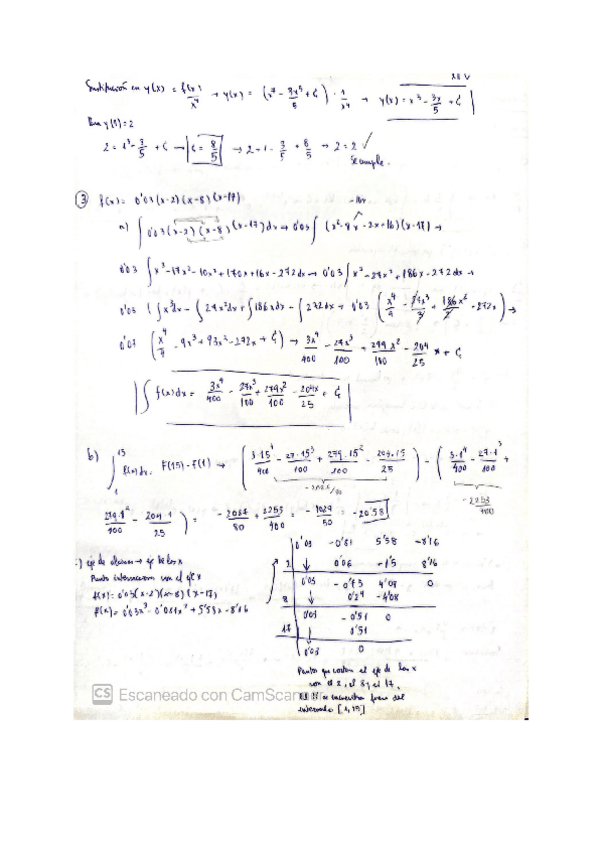 Sustitución en y(x) = f(x)/x⁴ → y(x) = (x⁷ - 3x⁵/5 + C) · 1/x⁴ → y(x) = x³ - 3x/5 + C
En y(1)=2
2 = 1³ - 3/5 + C → C = 8/5 → 2 = 1 - 3/5 + 8/5 → 2 = 2 ✓
Se cumple.
③ f(x) = 0'03 (x-2)(x-8)(x-17)
-10x
a) ∫ 0'03 (x-2)(x-8)(x-17) dx → 0'03 ∫ (x²-8x-2x+16)(x-17) →
0'03 ∫ x³-17x²-10x²+170x+16x-272 dx → 0'03 ∫ x³-27x²+186x-272 dx →
0'03 (∫x³dx - ∫27x²dx + ∫186x dx - ∫272dx → 0'03 (x⁴/4 - 27x³/3 + 186x²/2 - 272x) →
0'03 (x⁴/4 - 9x³ + 93x² - 272x + C) → 3x⁴/400 - 27x³/100 + 279x²/100 - 204/25 x + C
∫ f(x) dx = 3x⁴/400 - 27x³/100 + 279x²/100 - 204x/25 + C
b) ∫₁¹⁵ f(x) dx = F(15) - F(1) → (3·15⁴/400 - 27·15³/100 + 279·15²/100 - 204·15/25) - (3·1⁴/400 - 27·1³/100 +
-2253/400
279·1²/100 - 204·1/25) = - 2087/80 + 2253/400 = - 1029/50 = -20'58
-) eje de abscisas → eje de las x
Punto interseccion con el eje x
f(x) = 0'03(x-2)(x-8)(x-17)
f(x) = 0'03x³ - 0'81x² + 5'58x - 8'16
0'03 -0'81 5'58 -8'16
2 ↓ 0'06 -1'5 8'16
0'03 -0'75 4'08 0
8 ↓ 0'24 -4'08
0'03 -0'51 0
17 ↓ 0'51
0'03 0
Puntos que cortan el eje de las x
son el 2, el 8 y el 17,
se encuentra fuera del
intervalo [1,15]
CS Escaneado con CamScanner